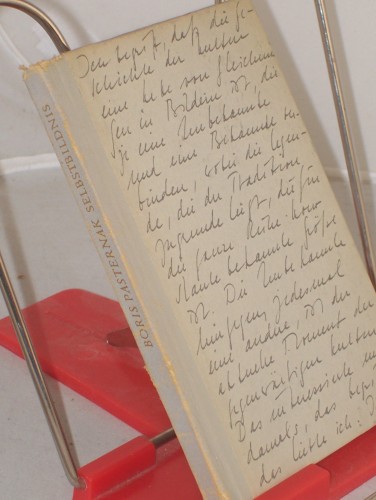 BORIS PASTERNAK SELBSTBILDNIS
Ich begriff, daß die Ge-
schichte der Kultur
eine Kette von Gleichnis-
sen in Bildern ist, die
je eine Unbekannte
und eine Bekannte ver-
binden, wobei die Legen-
de, die der Tradition
zugrunde liegt, die für
die ganze Reihe kon-
stante bekannte Größe
ist. Die Unbekannte
hingegen, jedesmal
eine andere, ist der
aktuelle Moment der
gegenwärtigen Kultur.
Das interessierte m
damals, das begri
das liebte ich: